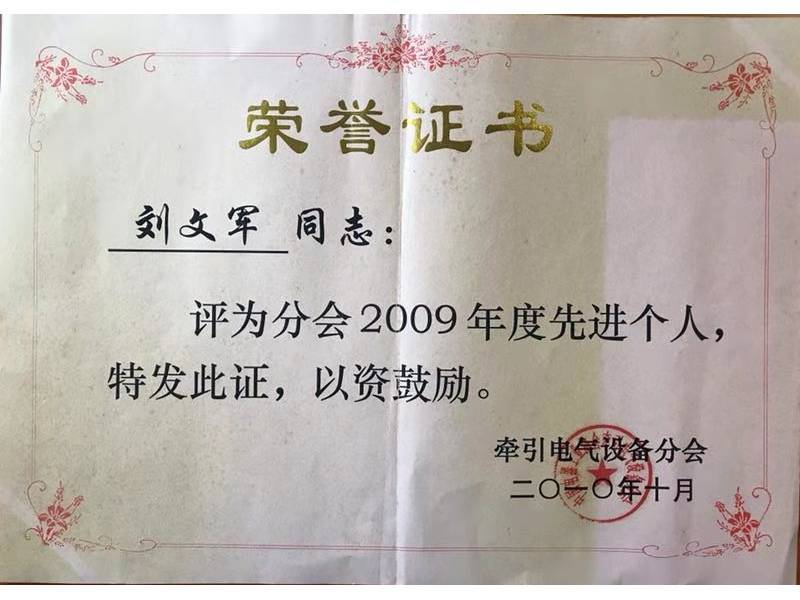 荣誉证书
刘文军 同志：
评为分会2009年度先进个人，
特发此证，以资鼓励。
牵引电气设备分会
二〇一〇年十月